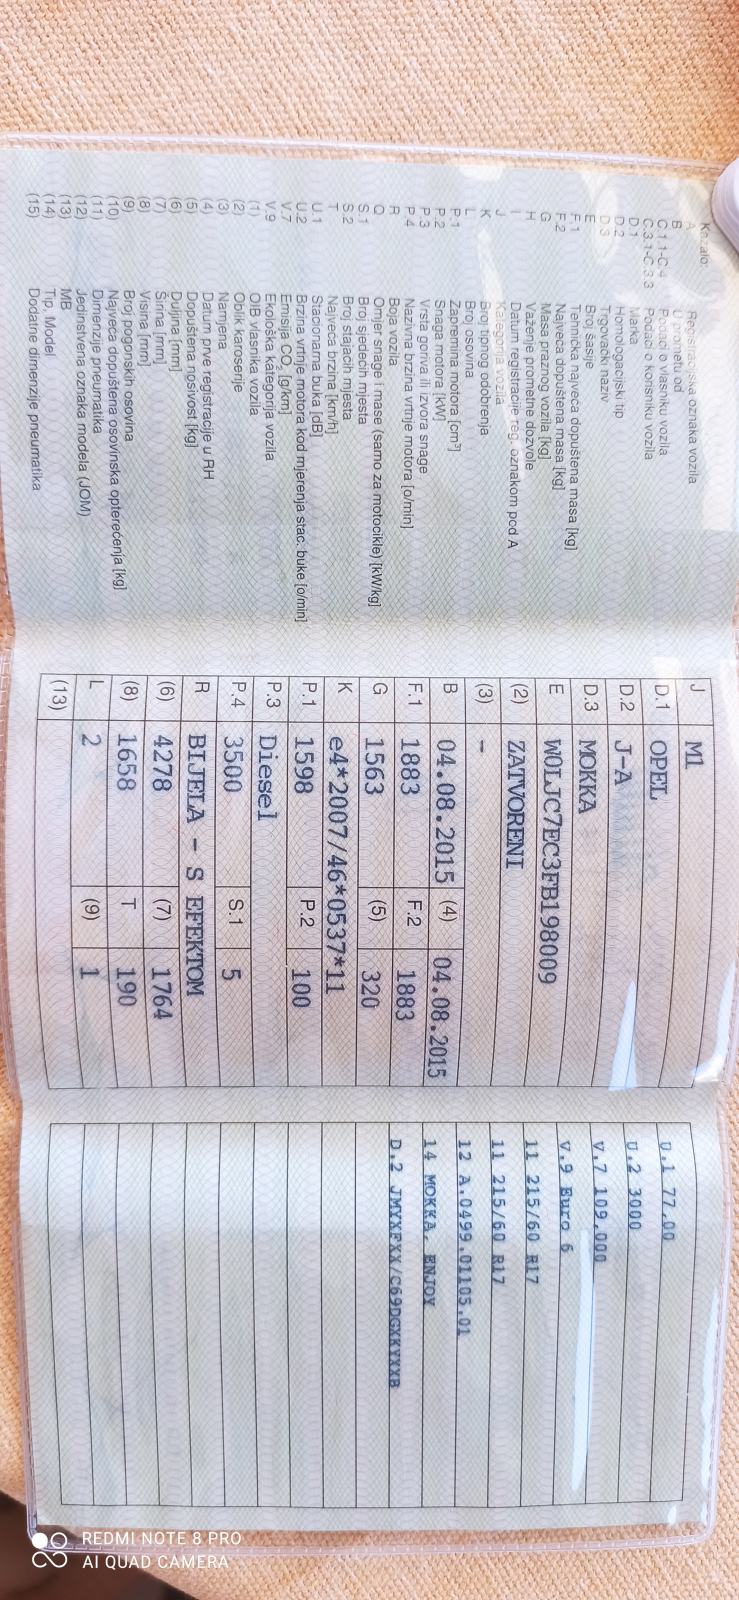 Kazalo:
A Registracijska oznaka vozila
B U prometu od
C.1.1-C.4 Podaci o vlasniku vozila
C.3.1-C.3.3 Podaci o korisniku vozila
D.1 Marka
D.2 Homologacijski tip
D.3 Trgovački naziv
E Broj šasije
F.1 Tehnička najveća dopuštena masa [kg]
F.2 Najveća dopuštena masa [kg]
G Masa praznog vozila [kg]
H Važenje prometne dozvole
I Datum registracije reg. oznakom pod A
J Kategorija vozila
K Broj tipnog odobrenja
L Broj osovina
P.1 Zapremina motora [cm³]
P.2 Snaga motora [kW]
P.3 Vrsta goriva ili izvora snage
P.4 Nazivna brzina vrtnje motora [o/min]
R Boja vozila
Q Omjer snage i mase (samo za motocikle) [kW/kg]
S.1 Broj sjedećih mjesta
S.2 Broj stajaćih mjesta
T Najveća brzina [km/h]
U.1 Stacionarna buka [dB]
U.2 Brzina vrtnje motora kod mjerenja stac. buke [o/min]
V.7 Emisija CO₂ [g/km]
V.9 Ekološka kategorija vozila
(1) OIB vlasnika vozila
(2) Oblik karoserije
(3) Namjena
(4) Datum prve registracije u RH
(5) Dopuštena nosivost [kg]
(6) Duljina [mm]
(7) Širina [mm]
(8) Visina [mm]
(9) Broj pogonskih osovina
(10) Najveća dopuštena osovinska opterećenja [kg]
(11) Dimenzije pneumatika
(12) Jedinstvena oznaka modela (JOM)
(13) MB
(14) Tip, Model
(15) Dodatne dimenzije pneumatika
J M1
D.1 OPEL
D.2 J-A
D.3 MOKKA
E W0LJC7EC3FB198009
(2) ZATVORENI
(3) -
B 04.08.2015 (4) 04.08.2015
F.1 1883 F.2 1883
G 1563 (5) 320
K e4*2007/46*0537*11
P.1 1598 P.2 100
P.3 Diesel
P.4 3500 S.1 5
R BIJELA - S EFEKTOM
(6) 4278 (7) 1764
(8) 1658 T 190
L 2 (9) 1
(13)
U.1 77.00
U.2 3000
V.7 109.000
V.9 Euro 6
11 215/60 R17
11 215/60 R17
12 A.0499.01105.01
14 MOKKA, ENJOY
D.2 JMYXFXX/C69DGXKYXXB
REDMI NOTE 8 PRO
AI QUAD CAMERA